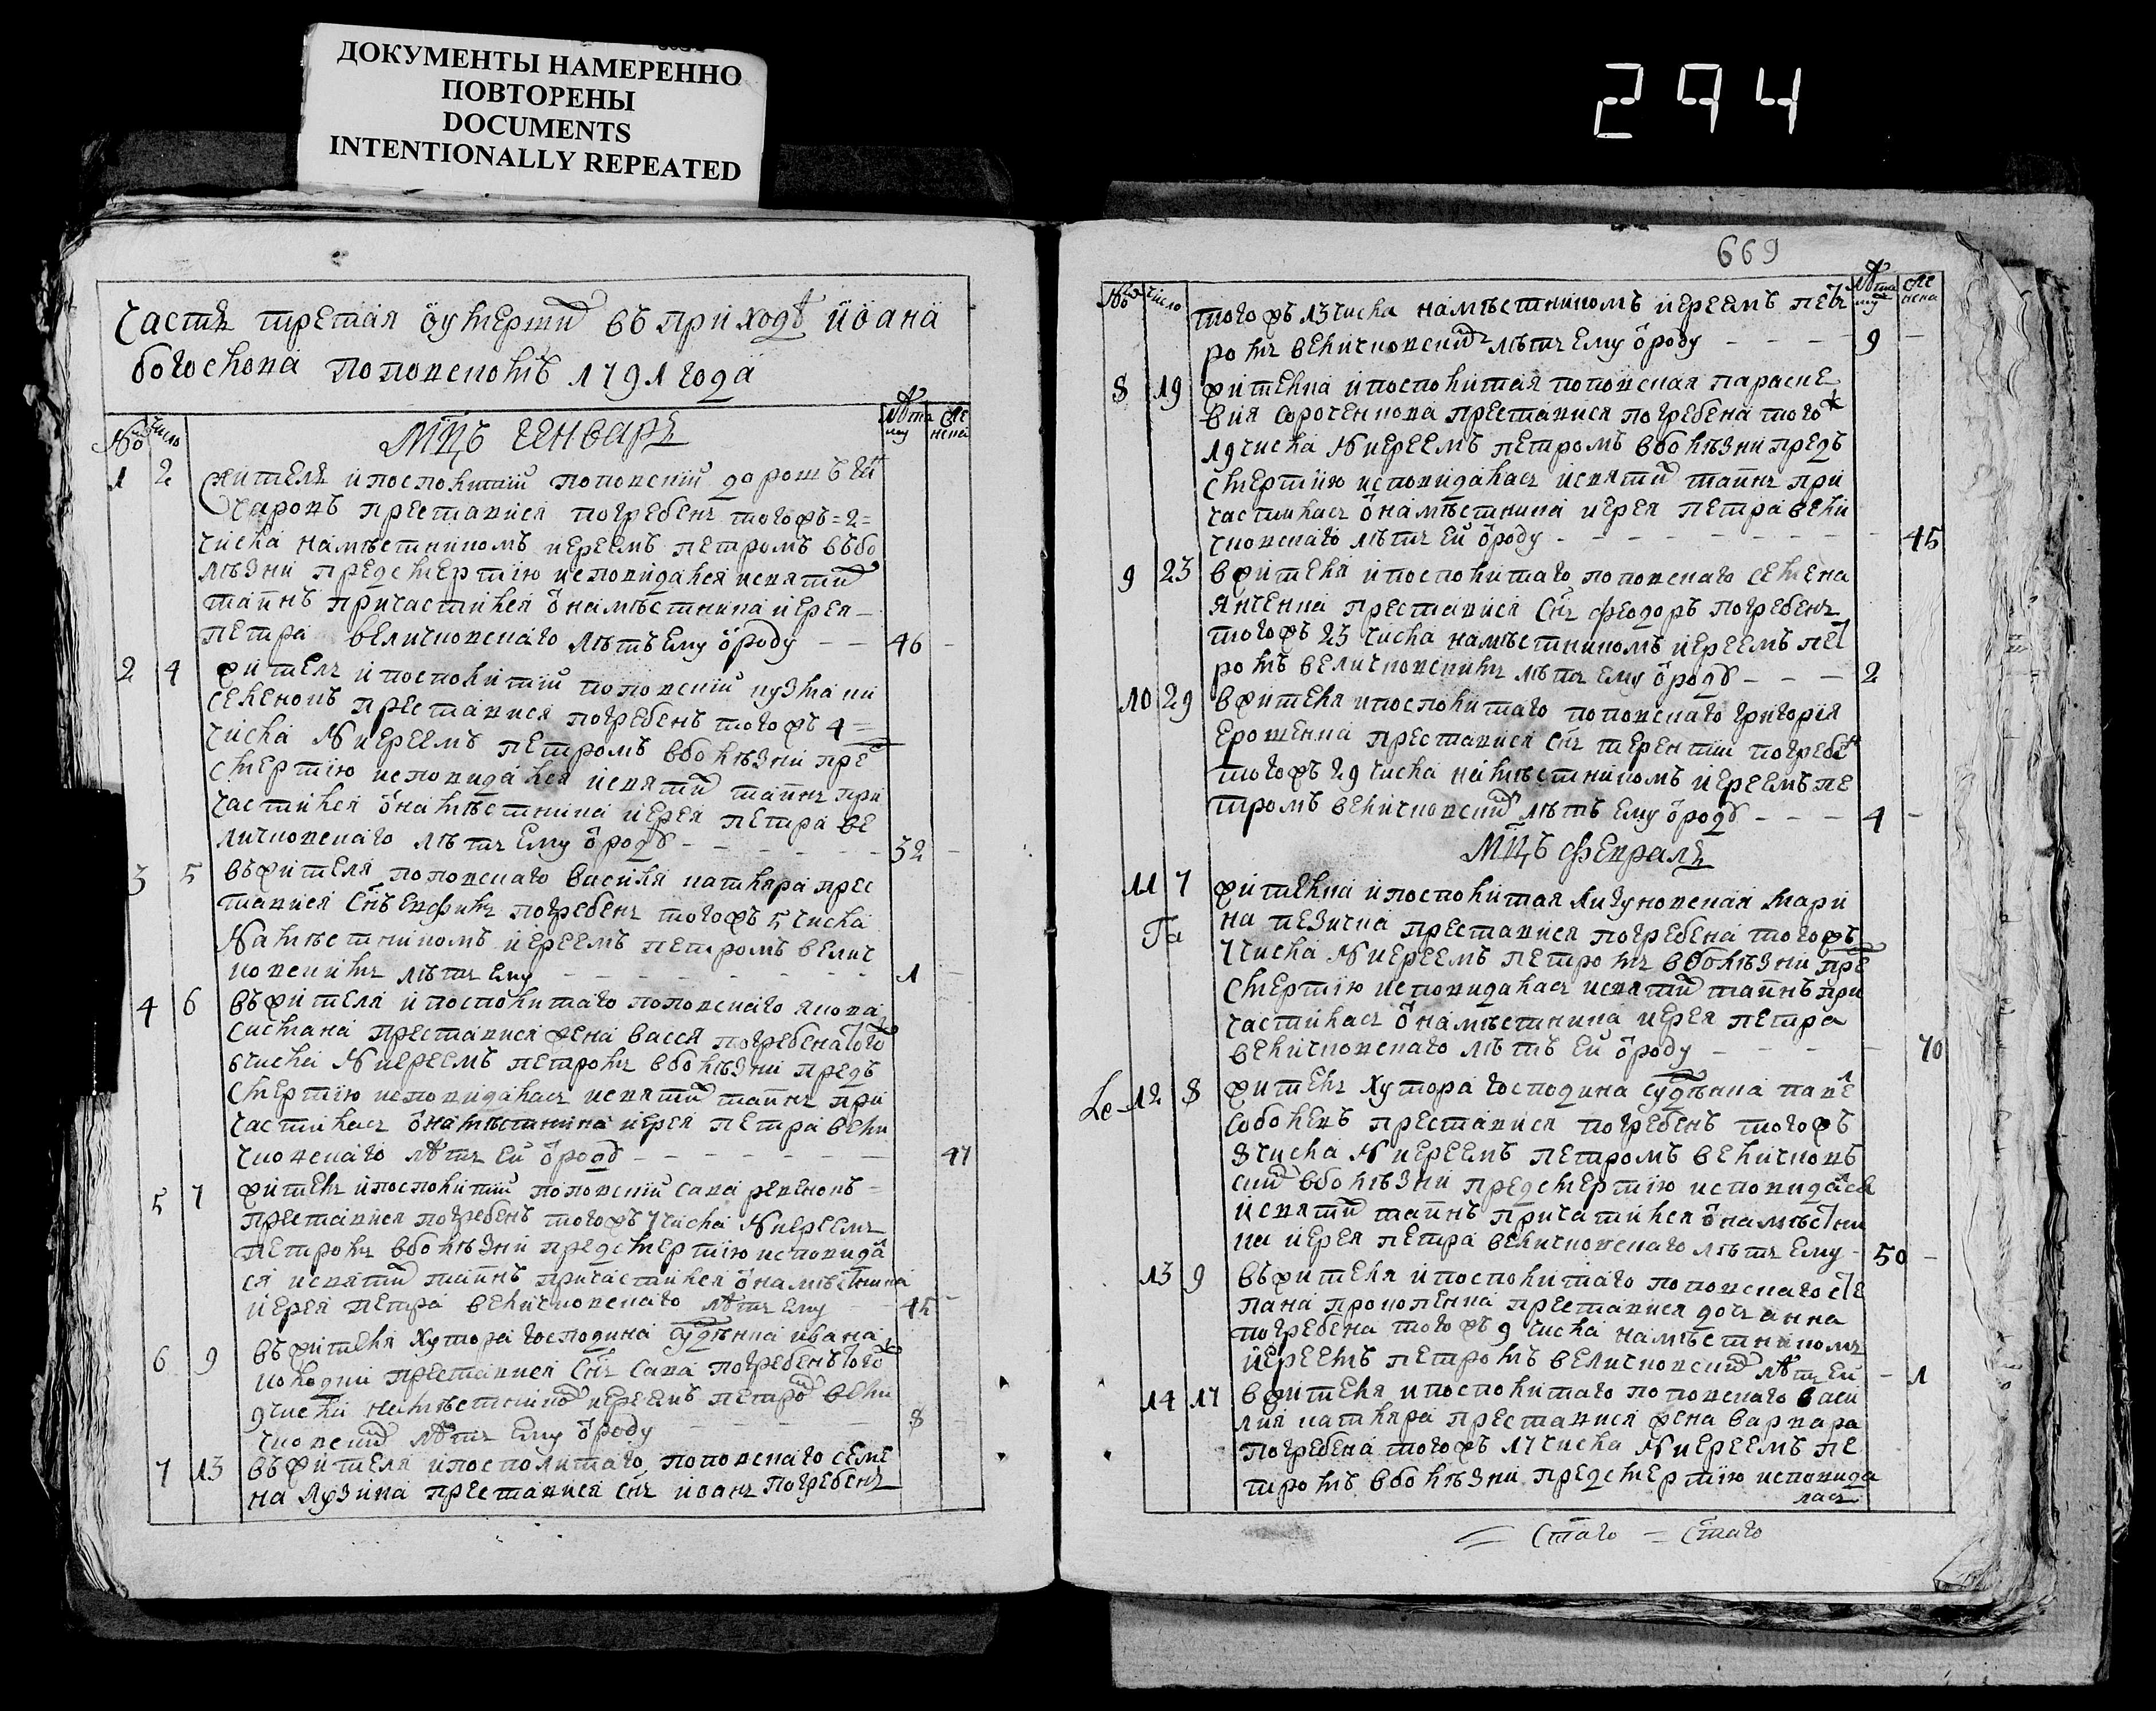 ДОКУМЕНТЫ НАМЕРЕННО
ПОВТОРЕНЫ
DOCUMENTS
INTENTIONALLY REPEATED
294
Часть третая ѡ умершихъ въ приходѣ Іѡана
богослова поповскомъ 1791 года
число лѣта
Мцъ Генваръ
1 2 Житель и посполитій поповскій
преставися погребенъ тогожъ =2=
числа намѣстникомъ иереемъ петромъ въ бо
лѣзни предсмертію исповидался и святихъ
таинъ причастился ѡ намѣстника иерея
петра величковскаго лѣтъ ему ѡроду 46
2 4 житель и посполитій поповскій кузма
преставися погребенъ тогожъ 4
числа N иереемъ петромъ вболѣзни пре
смертію исповидался и святихъ таинъ при
частился ѡ намѣстника иерея петра ве
личковскаго лѣтъ ему ѡроду 32
3 5 въ жителя поповскаго василя котляра прес
тавися снъ погребенъ тогожъ 5 числа
Намѣстникомъ иереемъ петромъ велич
ковскимъ лѣтъ ему 1
4 6 въ жителя и посполитаго поповскаго якова
преставися жена васся погребена того
6 числа N иереемъ петромъ вболѣзни предъ
смертію исповидалась и святихъ таинъ при
частилась ѡ намѣстника иерея петра вели
чковскаго лѣтъ ей ѡроду 47
5 7 житель и посполитій поповскій сава ревенокъ
преставися погребенъ тогожъ 7 числа N иереемъ
петромъ вболѣзни предсмертію исповида
ся и святихъ таинъ причастился ѡ намѣстника
иерея петра величковскаго лѣтъ ему 45
6 9 въ жителя хутора господина судѣнка ивана
преставися снъ сава погребенъ того
9 числа намѣстникомъ иереемъ петромъ вели
чковскимъ лѣтъ ему ѡроду 8
7 13 въ жителя и посполитаго поповскаго семе
на лузика преставися снъ иоанъ погребенъ
669
число лѣта
тогожъ 13 числа намѣстникомъ иереемъ пет
ромъ величковскимъ лѣтъ ему ѡроду 9
8 19 жителка и посполитая поповская параске
вия сороченкова преставися погребена того
19 числа N иереемъ петромъ вболѣзни предъ
смертію исповидалась и святихъ таинъ при
частилась ѡ намѣстника иерея петра вели
чковскаго лѣтъ ей ѡроду 45
9 23 в жителя и посполитаго поповскаго семена
янченка преставися снъ феодоръ погребенъ
тогожъ 23 числа намѣстникомъ иереемъ пет
ромъ величковскимъ лѣтъ ему ѡроду 2
10 29 в жителя и посполитаго поповскаго григорія
ерошенка преставися снъ терентій погребен
тогожъ 29 числа намѣстникомъ иереемъ пе
тромъ величковскимъ лѣтъ ему ѡроду 4
Мцъ февралъ
11 7 жителка и посполитая мари
на преставися погребена тогожъ
7 числа N иереемъ петромъ вболѣзни пре
смертію исповидалась и святихъ таинъ при
частилась ѡ намѣстника иерея петра
величковскаго лѣтъ ей ѡроду 70
12 8 житель хутора господина судѣнка павел
соболевъ преставися погребенъ тогожъ
8 числа N иереемъ петромъ величков
скимъ вболѣзни предсмертію исповидался
и святихъ таинъ причатился ѡ намѣстни
ка иерея петра величковскаго лѣтъ ему 50
13 9 въ жителя и посполитаго поповскаго сте
пана прокопенка преставися дочъ анна
погребена тогожъ 9 числа намѣстникомъ
иереемъ петромъ величковскимъ лѣтъ ей 1
14 17 в жителя и посполитаго поповскаго васи
лия котляра преставися жена варвара
погребена тогожъ 17 числа N иереемъ пе
тромъ вболѣзни предсмертію исповида
лась
= Стаго = Стаго